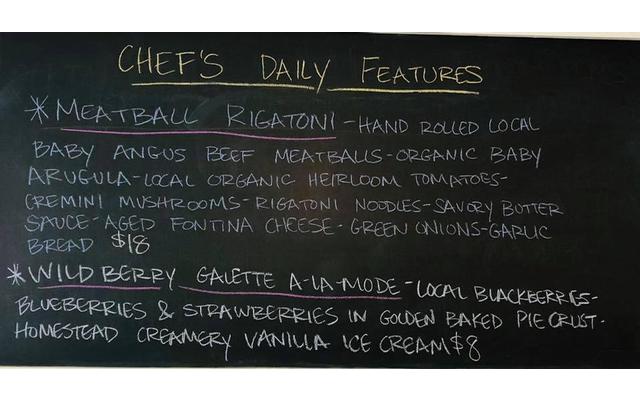 CHEF'S DAILY FEATURES
*MEATBALL RIGATONI - HAND ROLLED LOCAL
BABY ANGUS BEEF MEATBALLS - ORGANIC BABY
ARUGULA - LOCAL ORGANIC HEIRLOOM TOMATOES -
CREMINI MUSHROOMS - RIGATONI NOODLES - SAVORY BUTTER
SAUCE - AGED FONTINA CHEESE - GREEN ONIONS - GARLIC
BREAD $18
*WILD BERRY GALETTE A-LA-MODE - LOCAL BLACKBERRIES -
BLUEBERRIES & STRAWBERRIES IN GOLDEN BAKED PIE CRUST -
HOMESTEAD CREAMERY VANILLA ICE CREAM $8